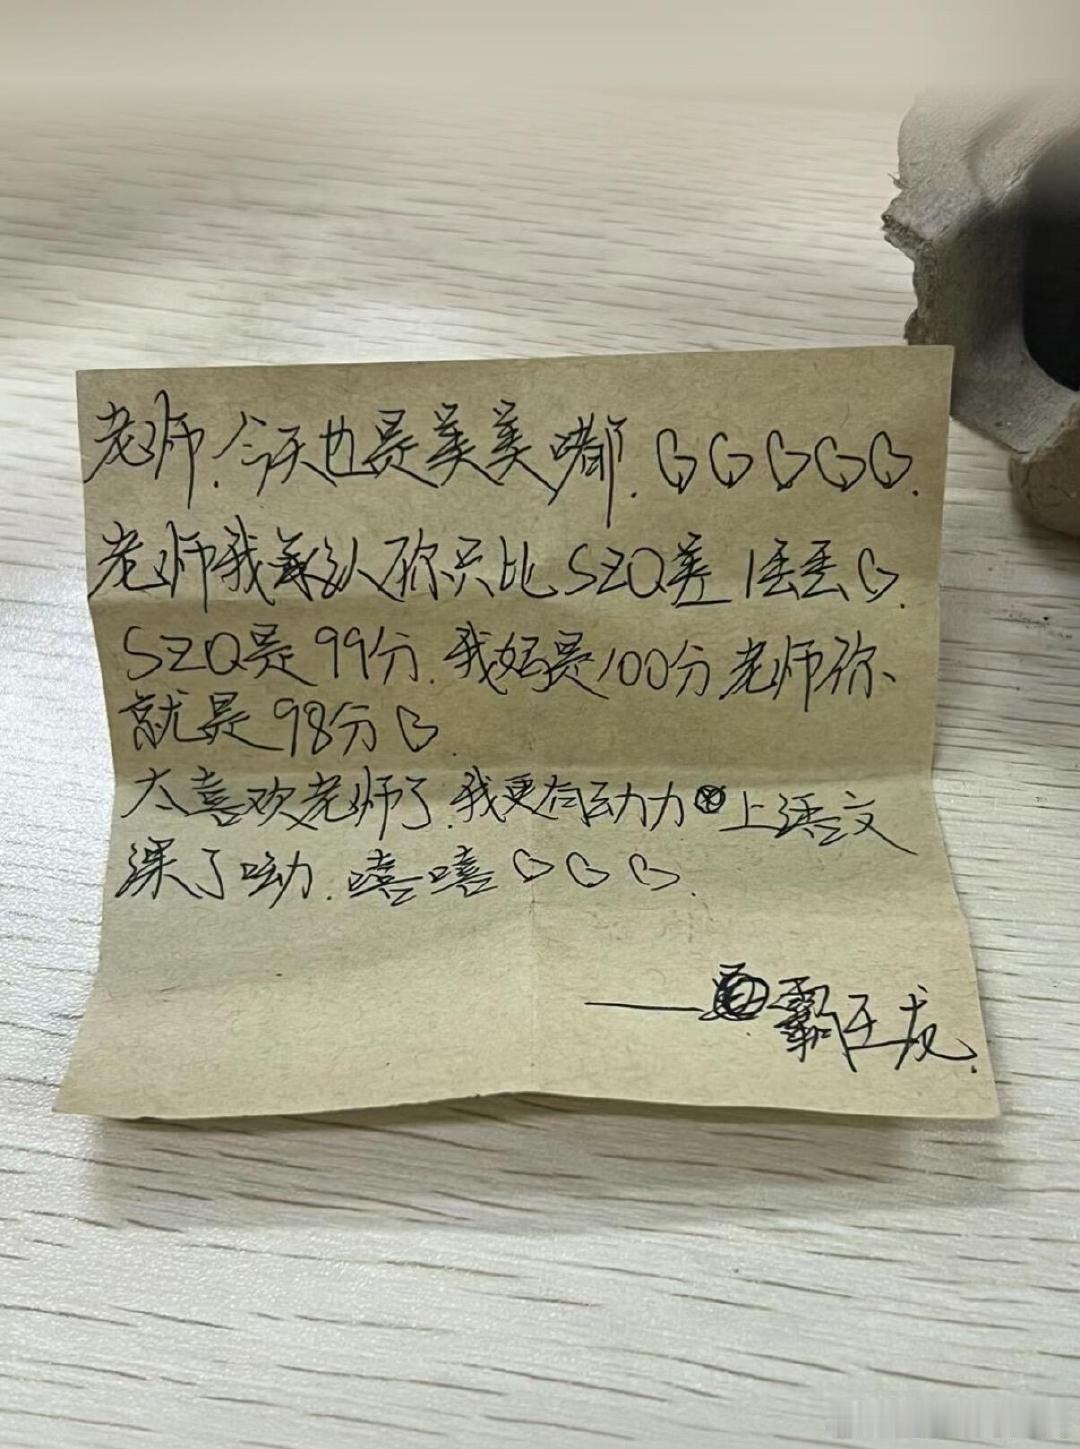 老师.今天也是美美嘟.♡♡♡♡♡.
老师我承认你只比SZQ差1丢丢♡.
SZQ是99分.我妈是100分老师你
就是98分♡.
太喜欢老师了.我更有动力上语文
课了呦.嘻嘻♡♡♡.
——霸王龙.